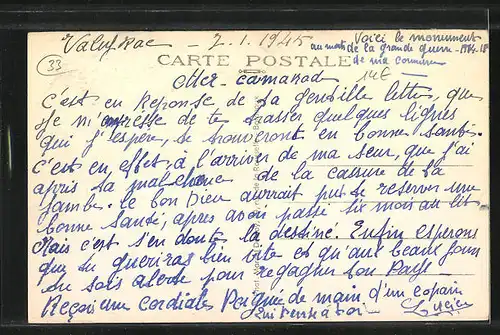 Valeyrac - 2.1.1945
Voici le monument
au morts de la grande guerre - 1914-18
de ma commune
33
CARTE POSTALE
14€
Cher camarade
C'est en Réponse de ta gentille lettre, que
Je m'empresse de te tracer quelques lignes
qui j'espère, te trouveront en bonne santé.
C'est en effet, à l'arriver de ma seur, que j'ai
apris ta malchance de la cassure de la
jambe. le bon Dieu aurrait put te reserver une
bonne santé, apres avoir passé six mois au lit
Mais c'est s'en doute la destiné. Enfin esperons
que tu gueriras bien vite et qu'aux beaux jours
tu sois alerte pour regagner ton Pays -
Reçoi une cordiales Poignée de main, d'un copain
qui pense à toi Lucien